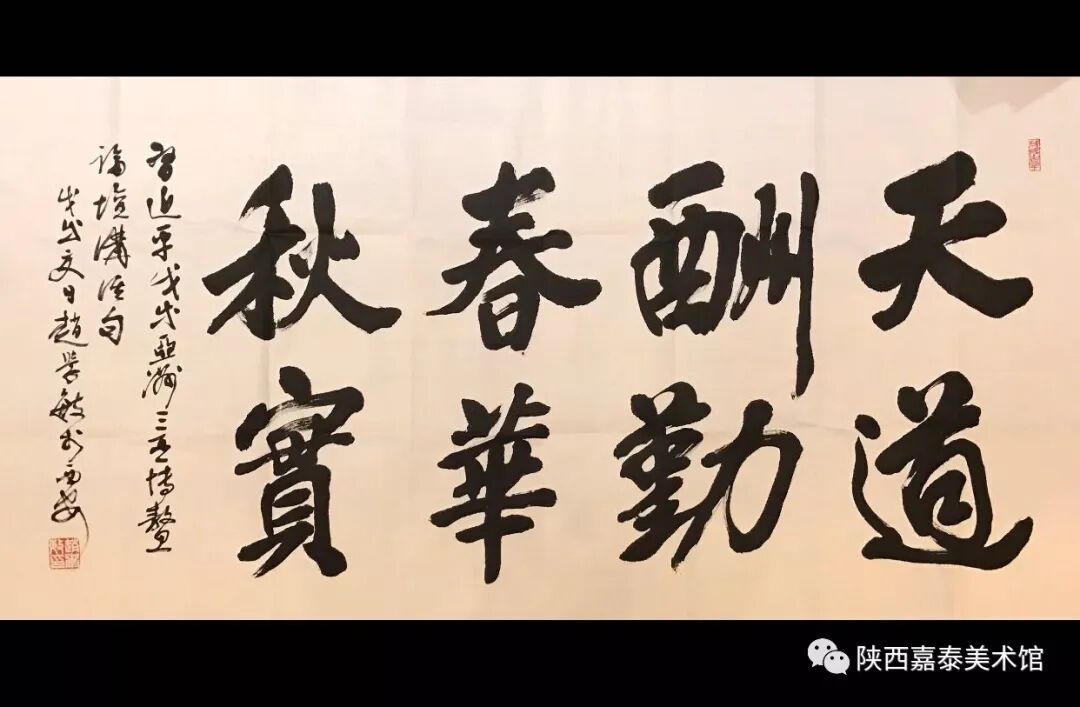 天道
酬勤
春華
秋實
習近平戊戌亞洲三亚博鳌
論壇講话句
戊戌文日趙学敏书西安
陕西嘉泰美术馆